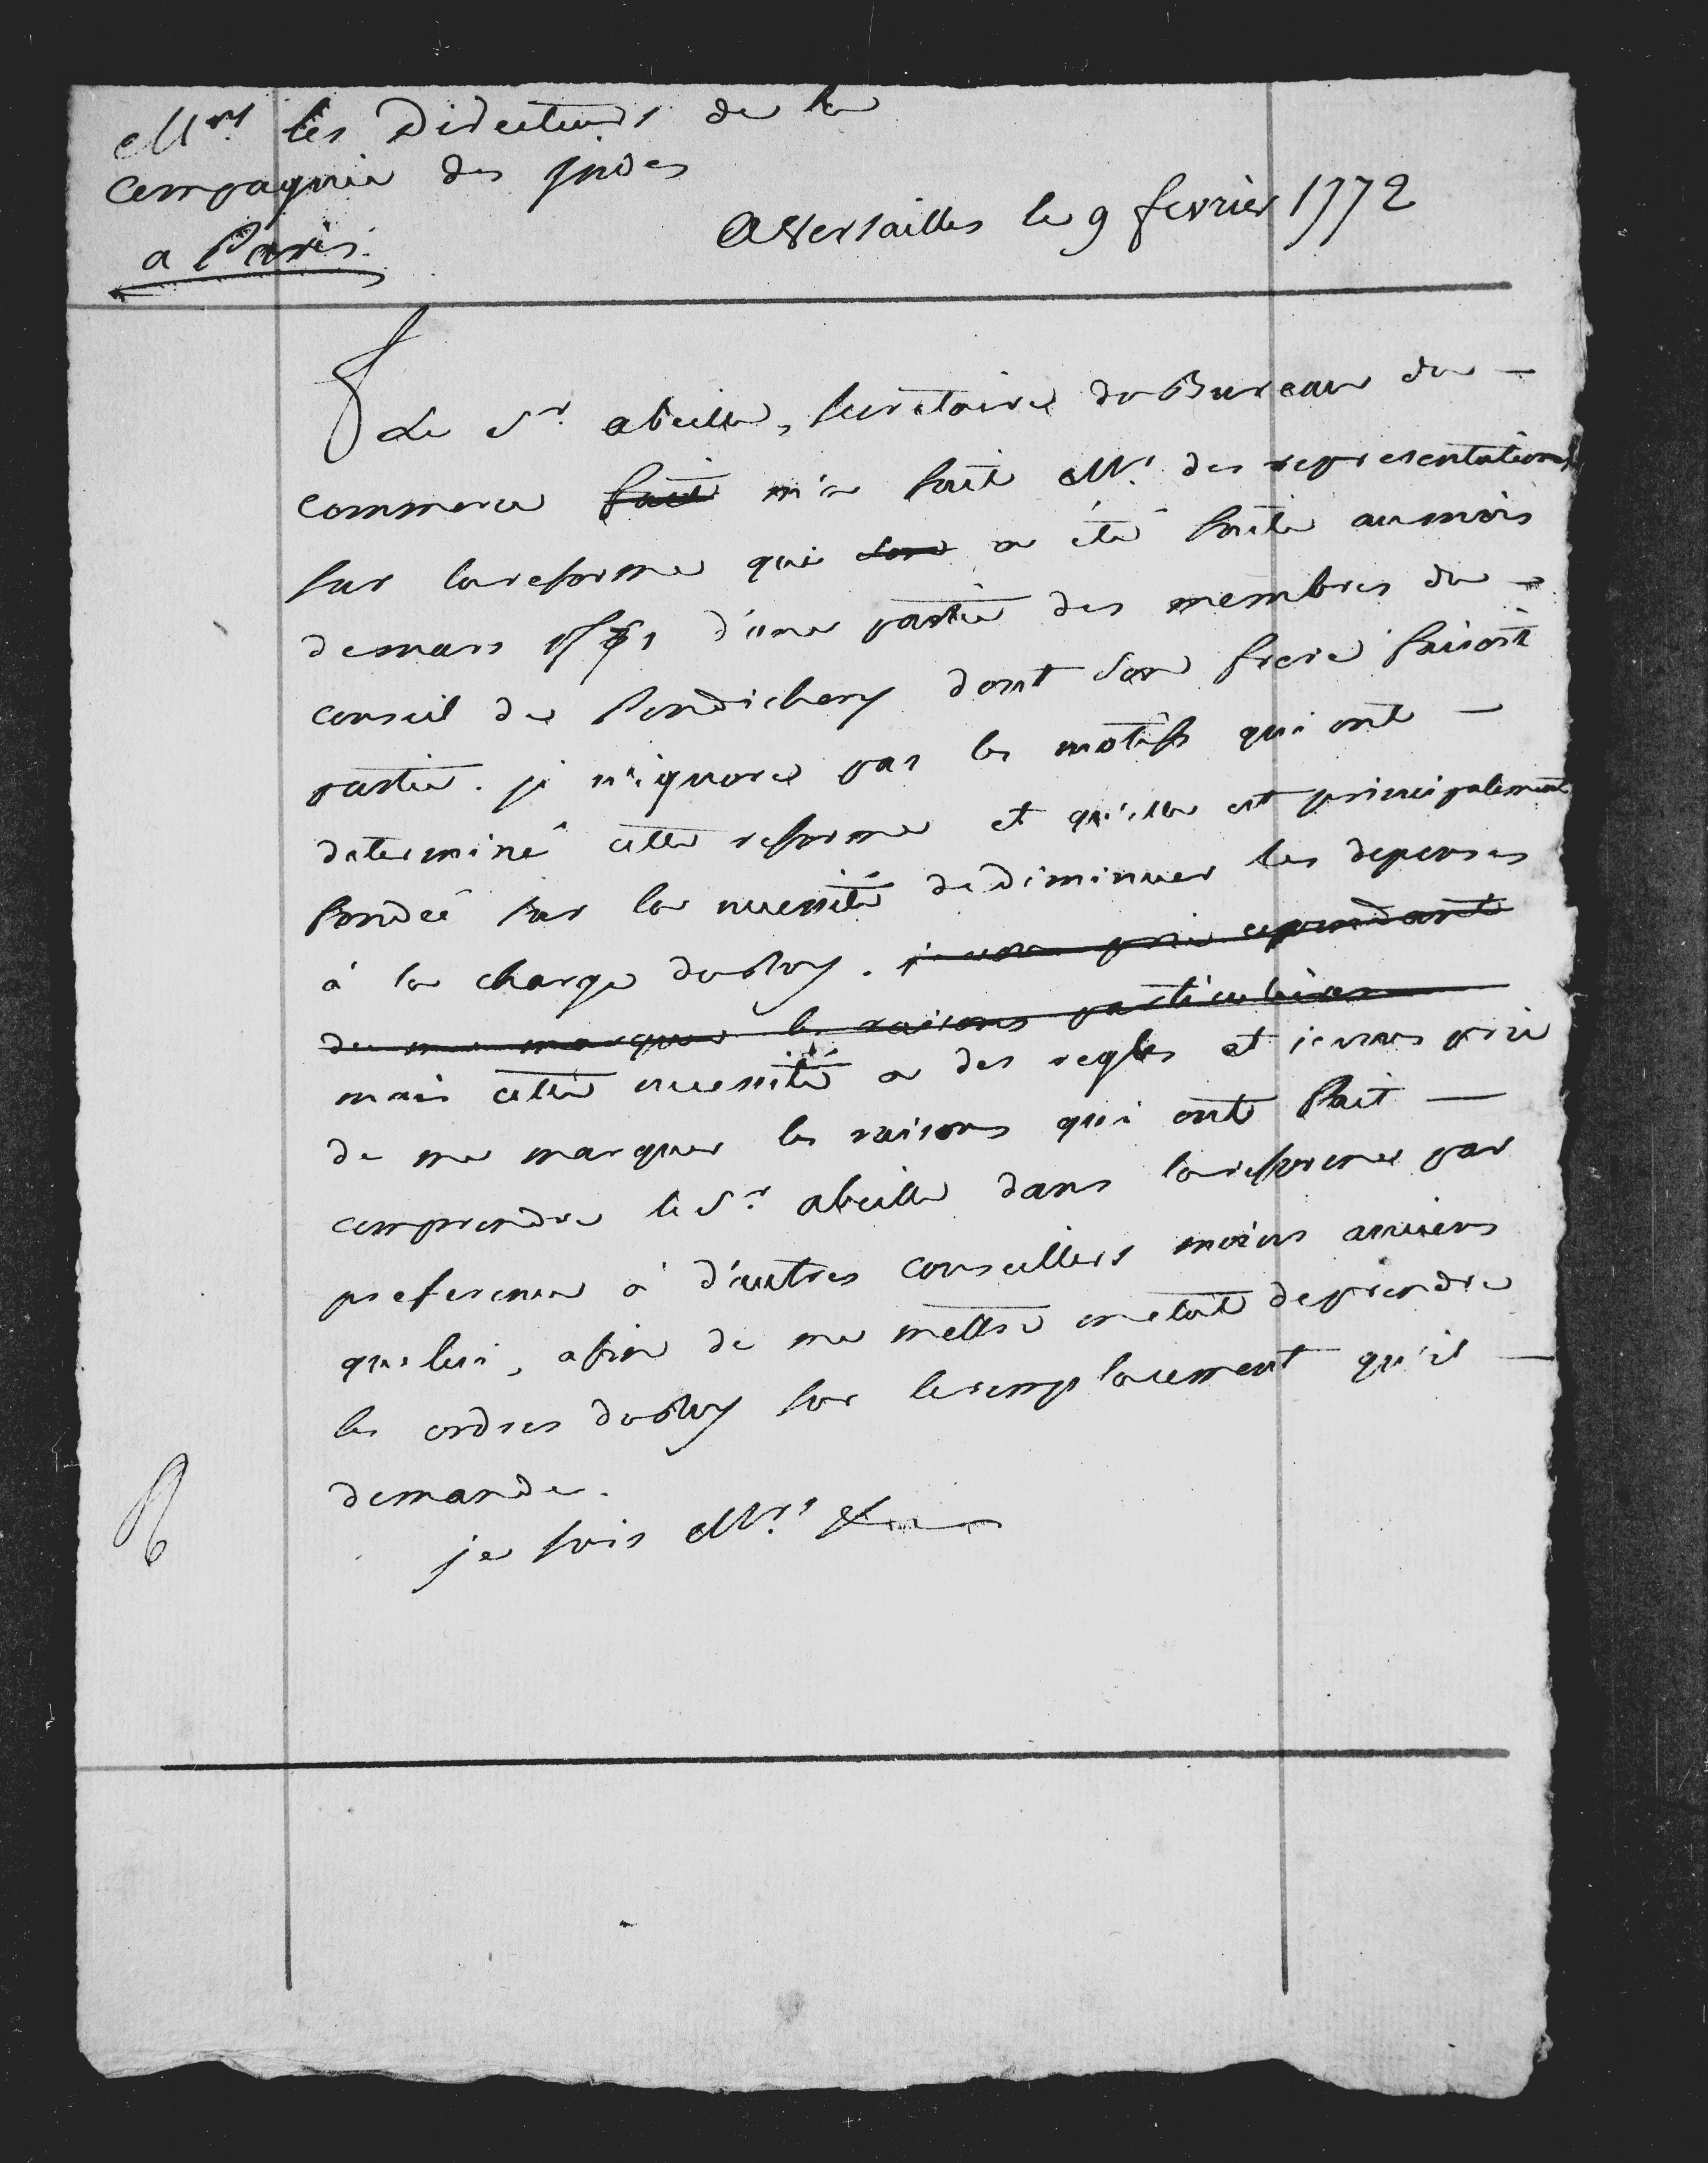 Mrs. les Directeurs de la
Compagnie des jndes
a Paris.
A Versailles le 9 fevrier 1772
Le Sr. abeille, secretaire du Bureau du
commerce fait m'a fait Mrs. des representations
sur la reforme qui a été faite au mois
de mars 1771 d'une partie des membres du
conseil de Pondichery dont son frere faisoit
partie. je n'ignore pas les motifs qui ont
determiné cette reforme et qu'elle est principalement
fondée sur la necessité de diminuer les depenses
à la charge du Roy. je vous prie cependant
de me marquer les raisons particulieres
mais cette necessité a des regles et je vous prie
de me marquer les raisons qui ont fait
comprendre le Sr. abeille dans la reforme par
preference à d'autres conseillers moins anciens
que lui, afin de me mettre en etat de prendre
les ordres du Roy sur le remplacement qu'il
demande.
je suis Mrs. &